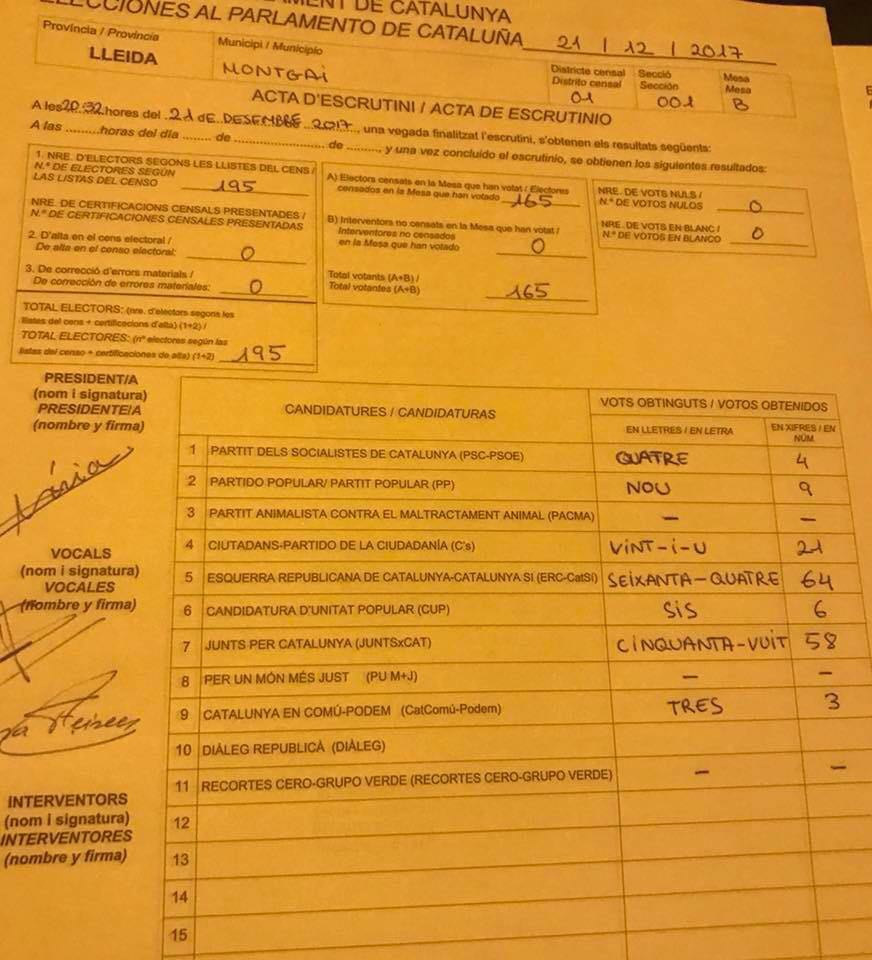 MENT DE CATALUNYA
ELECCIONES AL PARLAMENTO DE CATALUÑA 21 / 12 / 2017
Província / Provincia
LLEIDA
Municipi / Municipio
MONTGAI
Districte censal
Distrito censal
01
Secció
Sección
001
Mesa
Mesa
B
ACTA D'ESCRUTINI / ACTA DE ESCRUTINIO
A les 20:32 hores del 21 dE DESEMBRE 2017, una vegada finalitzat l'escrutini, s'obtenen els resultats següents:
A las ........horas del día ....... de ........................ de ........, y una vez concluido el escrutinio, se obtienen los siguientes resultados:
1. NRE. D'ELECTORS SEGONS LES LLISTES DEL CENS /
N.º DE ELECTORES SEGÚN
LAS LISTAS DEL CENSO 195
NRE. DE CERTIFICACIONS CENSALS PRESENTADES /
N.º DE CERTIFICACIONES CENSALES PRESENTADAS
2. D'alta en el cens electoral /
De alta en el censo electoral: 0
3. De correcció d'errors materials /
De corrección de errores materiales: 0
TOTAL ELECTORS: (nre. d'electors segons les
llistes del cens + certificacions d'alta) (1+2) /
TOTAL ELECTORES: (nº electores según las
listas del censo + certificaciones de alta) (1+2) 195
A) Electors censats en la Mesa que han votat / Electores
censados en la Mesa que han votado 165
B) Interventors no censats en la Mesa que han votat /
Interventores no censados
en la Mesa que han votado 0
Total votants (A+B) /
Total votantes (A+B) 165
NRE. DE VOTS NULS /
N.º DE VOTOS NULOS 0
NRE. DE VOTS EN BLANC /
N.º DE VOTOS EN BLANCO 0
PRESIDENT/A
(nom i signatura)
PRESIDENTE/A
(nombre y firma)
VOCALS
(nom i signatura)
VOCALES
(nombre y firma)
INTERVENTORS
(nom i signatura)
INTERVENTORES
(nombre y firma)
CANDIDATURES / CANDIDATURAS
VOTS OBTINGUTS / VOTOS OBTENIDOS
EN LLETRES / EN LETRA
EN XIFRES / EN NÚM.
1 PARTIT DELS SOCIALISTES DE CATALUNYA (PSC-PSOE) QUATRE 4
2 PARTIDO POPULAR/ PARTIT POPULAR (PP) NOU 9
3 PARTIT ANIMALISTA CONTRA EL MALTRACTAMENT ANIMAL (PACMA) — —
4 CIUTADANS-PARTIDO DE LA CIUDADANÍA (C's) VINT-I-U 21
5 ESQUERRA REPUBLICANA DE CATALUNYA-CATALUNYA SÍ (ERC-CatSí) SEIXANTA-QUATRE 64
6 CANDIDATURA D'UNITAT POPULAR (CUP) SIS 6
7 JUNTS PER CATALUNYA (JUNTSxCAT) CINQUANTA-VUIT 58
8 PER UN MÓN MÉS JUST (PU M+J) — —
9 CATALUNYA EN COMÚ-PODEM (CatComú-Podem) TRES 3
10 DIÀLEG REPUBLICÀ (DIÀLEG)
11 RECORTES CERO-GRUPO VERDE (RECORTES CERO-GRUPO VERDE) — —
12
13
14
15